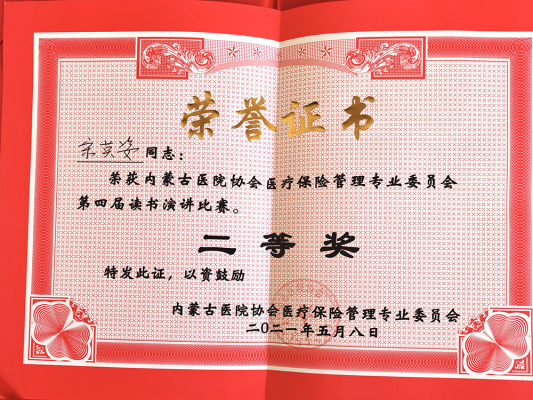 荣誉证书
宋英姿 同志：
荣获内蒙古医院协会医疗保险管理专业委员会
第四届读书演讲比赛。
二等奖
特发此证，以资鼓励
内蒙古医院协会医疗保险管理专业委员会
二〇二一年五月八日